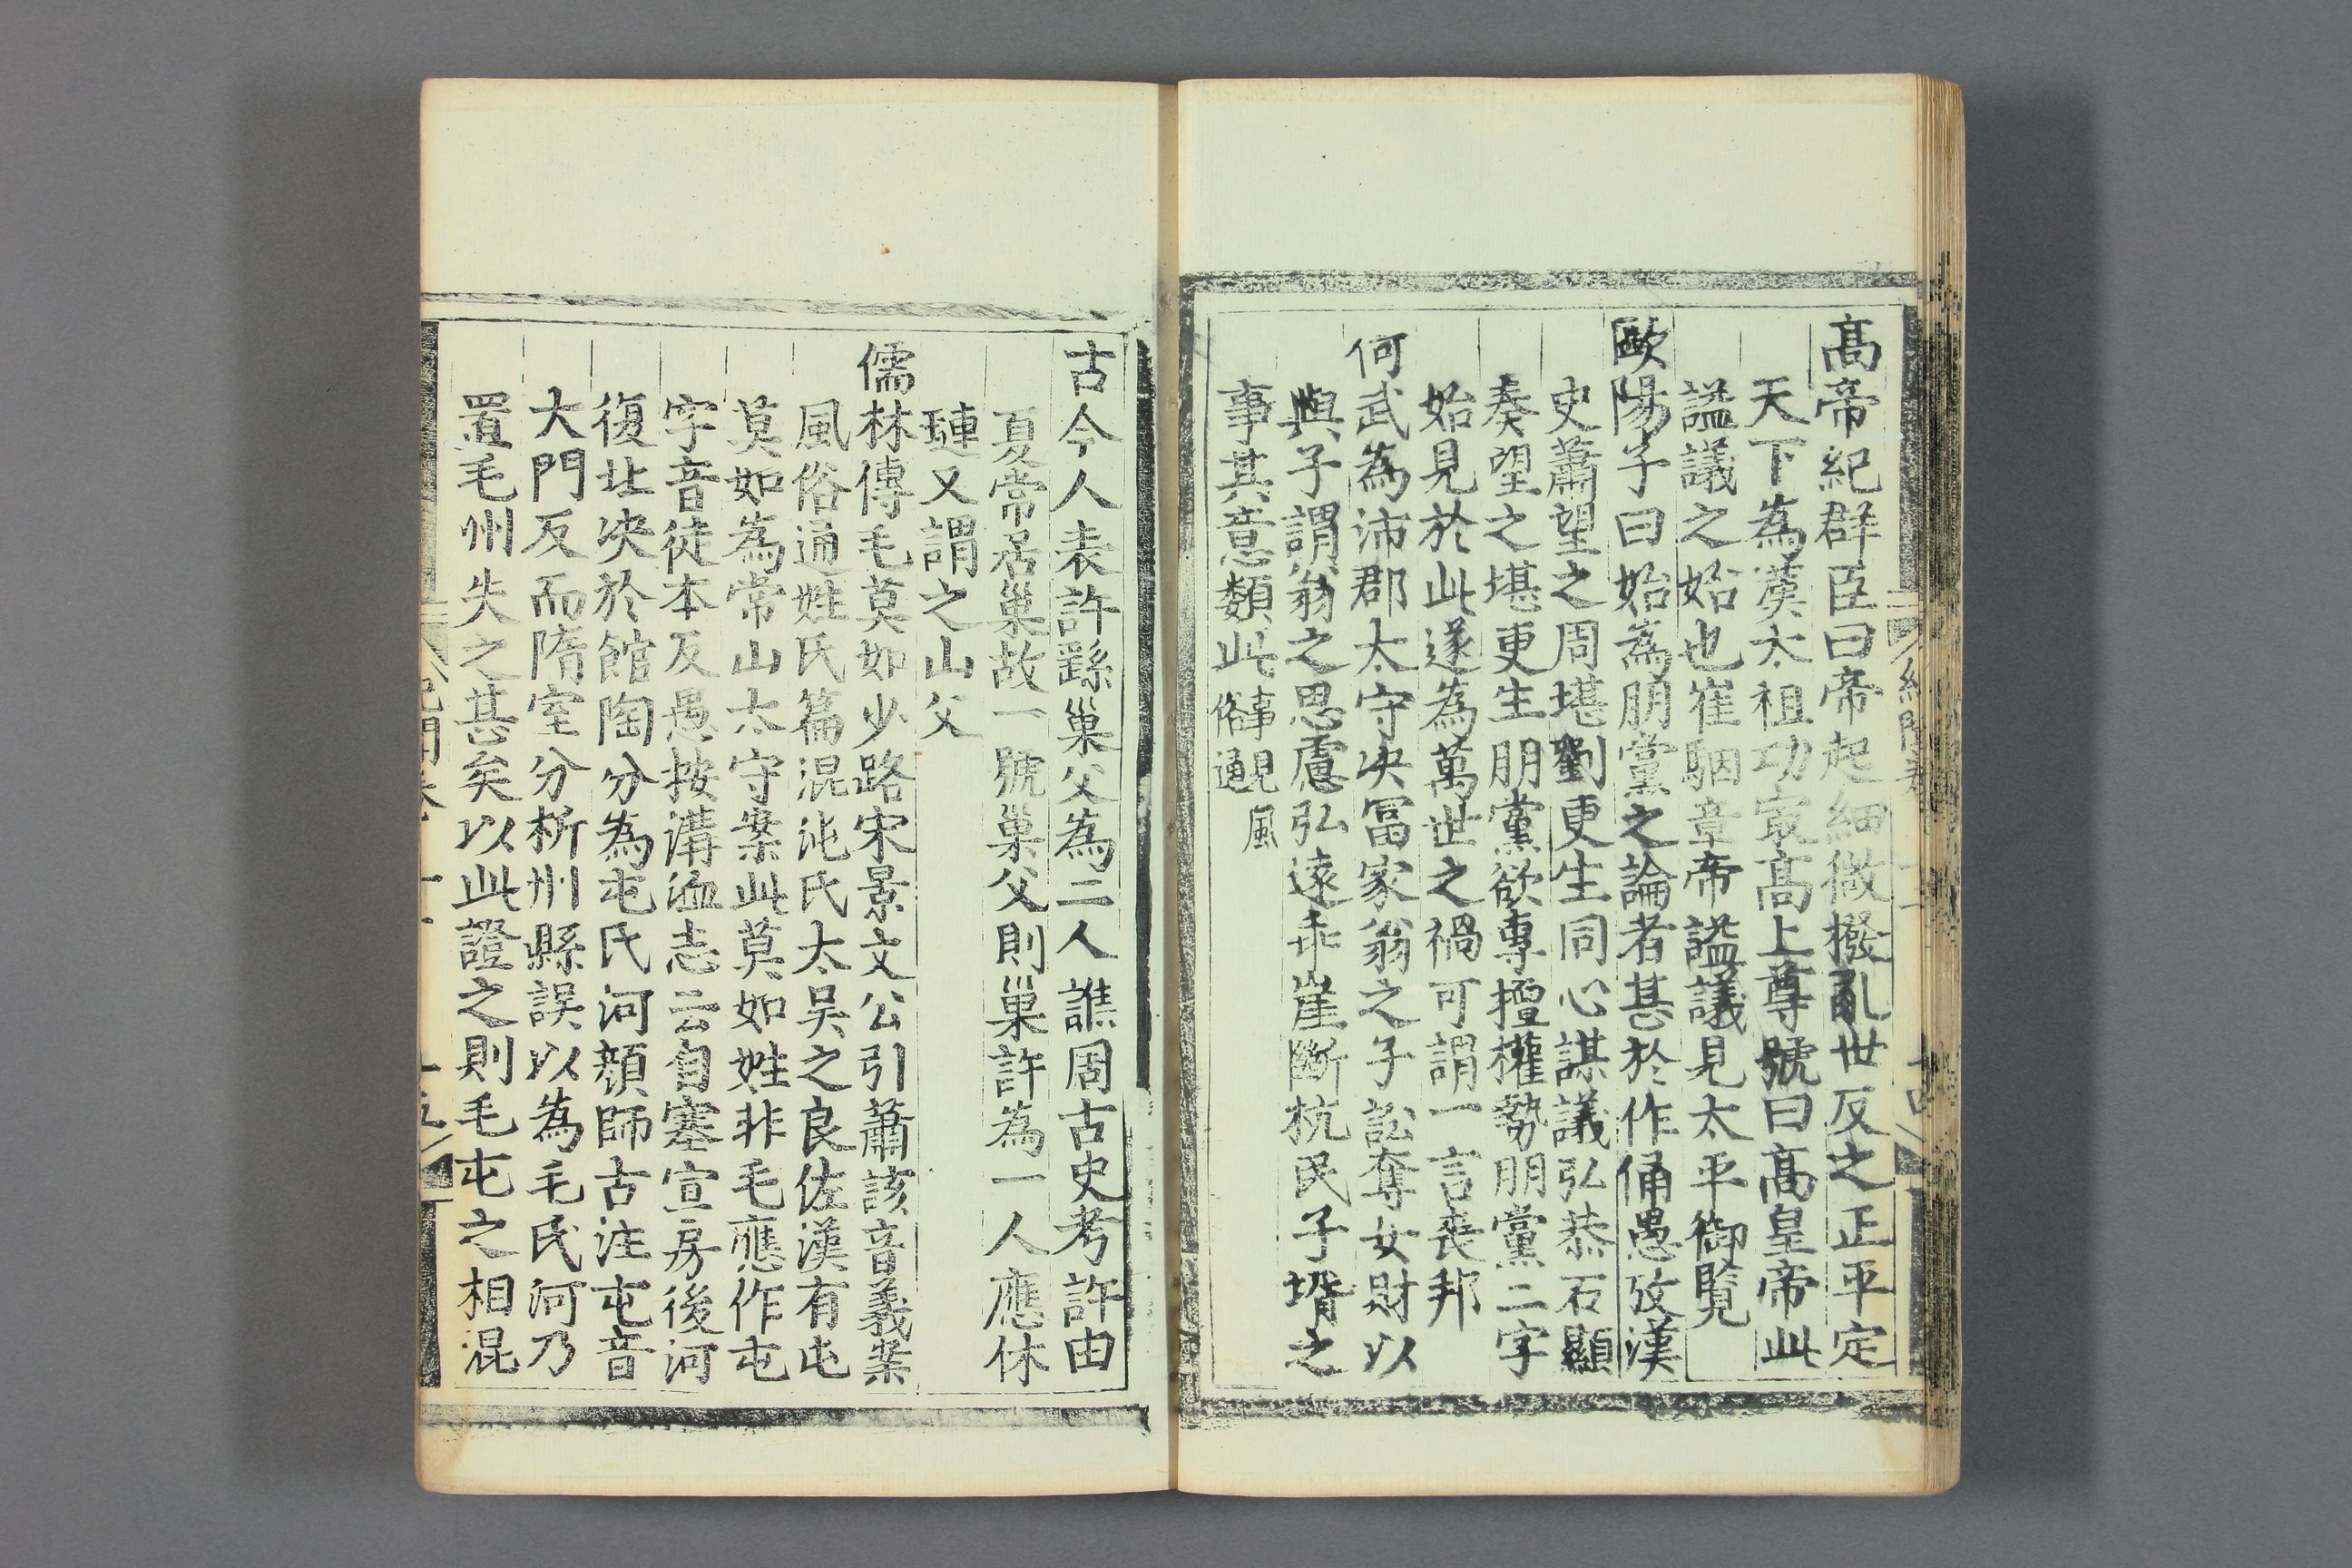 髙帝紀群臣曰帝起細微撥亂世反之正平定
天下為漢太祖功㝡髙上尊號曰髙皇帝此
謚議之始也崔駰章帝謚議見太平御覧
歐陽子曰始為朋黨之論者甚於作俑愚攷漢
史蕭望之周堪劉更生同心謀議弘恭石顯
奏望之堪更生朋黨欲專擅權勢朋黨二字
始見於此遂為萬世之禍可謂一言喪邦
何武為沛郡太守决冨家翁之子訟奪女財以
與子謂翁之思慮弘逺乖崖斷杭民子壻之
事其意類此事見風
俗通
古今人表許繇巢父為二人譙周古史考許由
夏常居巢故一號巢父則巢許為一人應休
璉又謂之山父
儒林傳毛莫如少路宋景文公引蕭該音義案
風俗通姓氏篇混沌氏太吴之良佐漢有屯
莫如為常山太守案此莫如姓非毛應作屯
字音徒本反愚按溝洫志云自塞宣房後河
復北决於館陶分為屯氏河顔師古注屯音
大門反而隋室分析州縣誤以為毛氏河乃
置毛州失之甚矣以此證之則毛屯之相混